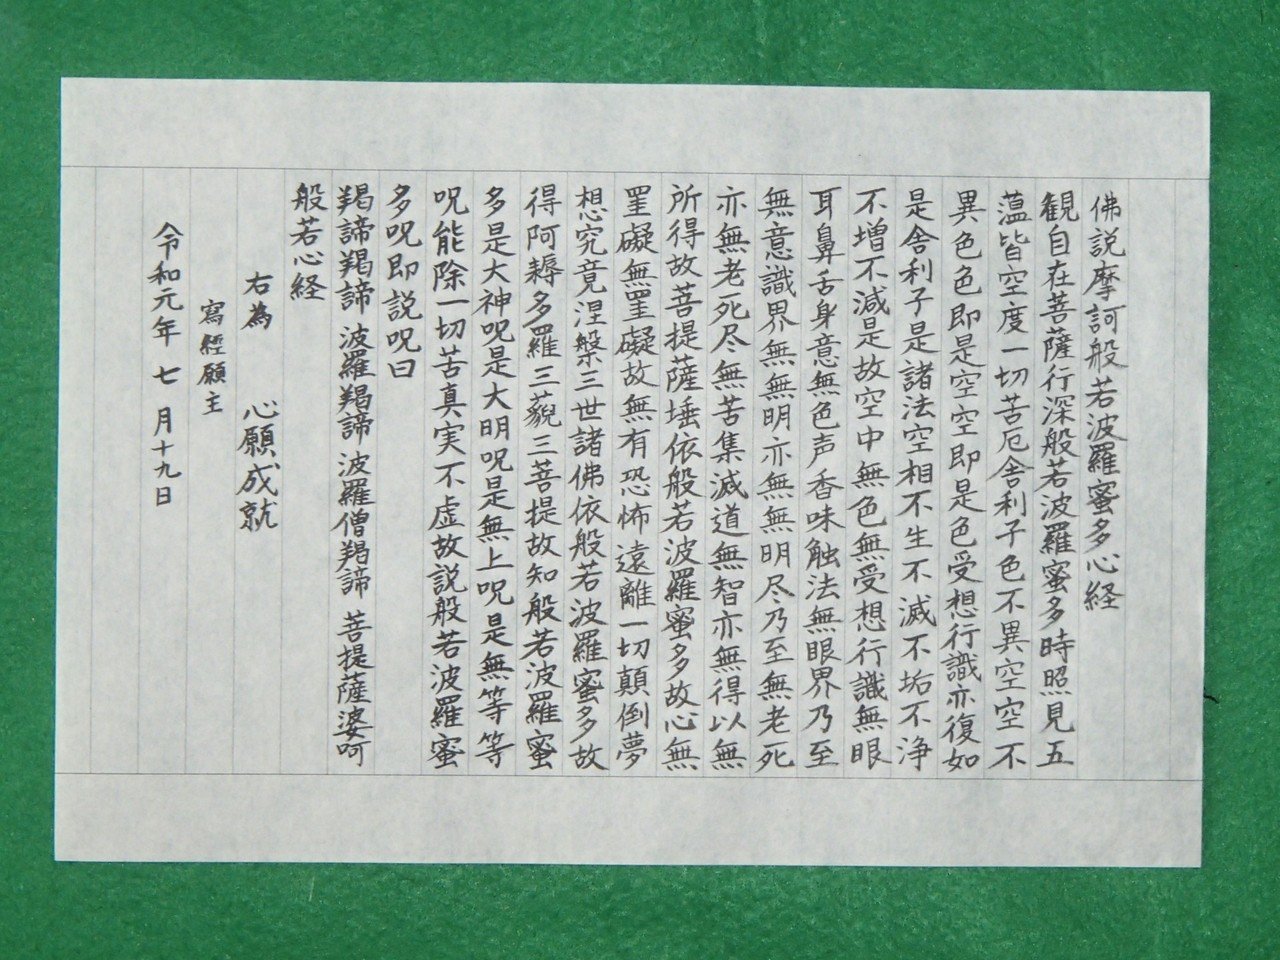 佛説摩訶般若波羅蜜多心経
観自在菩薩行深般若波羅蜜多時照見五
薀皆空度一切苦厄舎利子色不異空空不
異色色即是空空即是色受想行識亦復如
是舎利子是諸法空相不生不滅不垢不浄
不増不減是故空中無色無受想行識無眼
耳鼻舌身意無色声香味触法無眼界乃至
無意識界無無明亦無無明尽乃至無老死
亦無老死尽無苦集滅道無智亦無得以無
所得故菩提薩埵依般若波羅蜜多故心無
罣礙無罣礙故無有恐怖遠離一切顛倒夢
想究竟涅槃三世諸佛依般若波羅蜜多故
得阿耨多羅三藐三菩提故知般若波羅蜜
多是大神呪是大明呪是無上呪是無等等
呪能除一切苦真実不虚故説般若波羅蜜
多呪即説呪曰
羯諦羯諦 波羅羯諦 波羅僧羯諦 菩提薩婆呵
般若心経
右為 心願成就
寫經願主
令和元年 七 月十九日